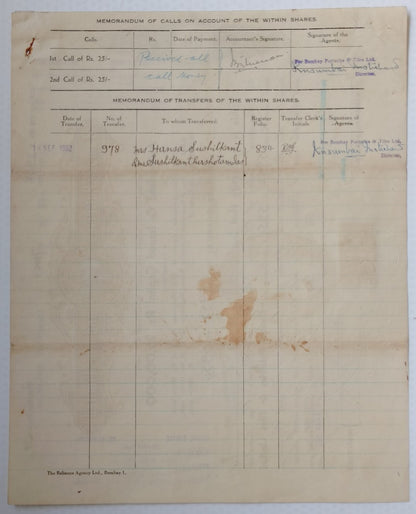 MEMORANDUM OF CALLS ON ACCOUNT OF THE WITHIN SHARES.
Calls. Rs. Date of Payment. Accountant's Signature. Signature of the Agents.
1st Call of Rs. 25/- Received all For Bombay Potteries & Tiles Ltd.
2nd Call of Rs. 25/- call money Director.
MEMORANDUM OF TRANSFERS OF THE WITHIN SHARES.
Date of Transfer. No. of Transfer. To whom Transferred. Register Folio. Transfer Clerk's Initials. Signature of Agents.
SEP 1952 978 Mrs Hansa Sushilkant 834 For Bombay Potteries & Tiles Ltd.
Sushilkant Director.
The Reliance Agency Ltd., Bombay 1.